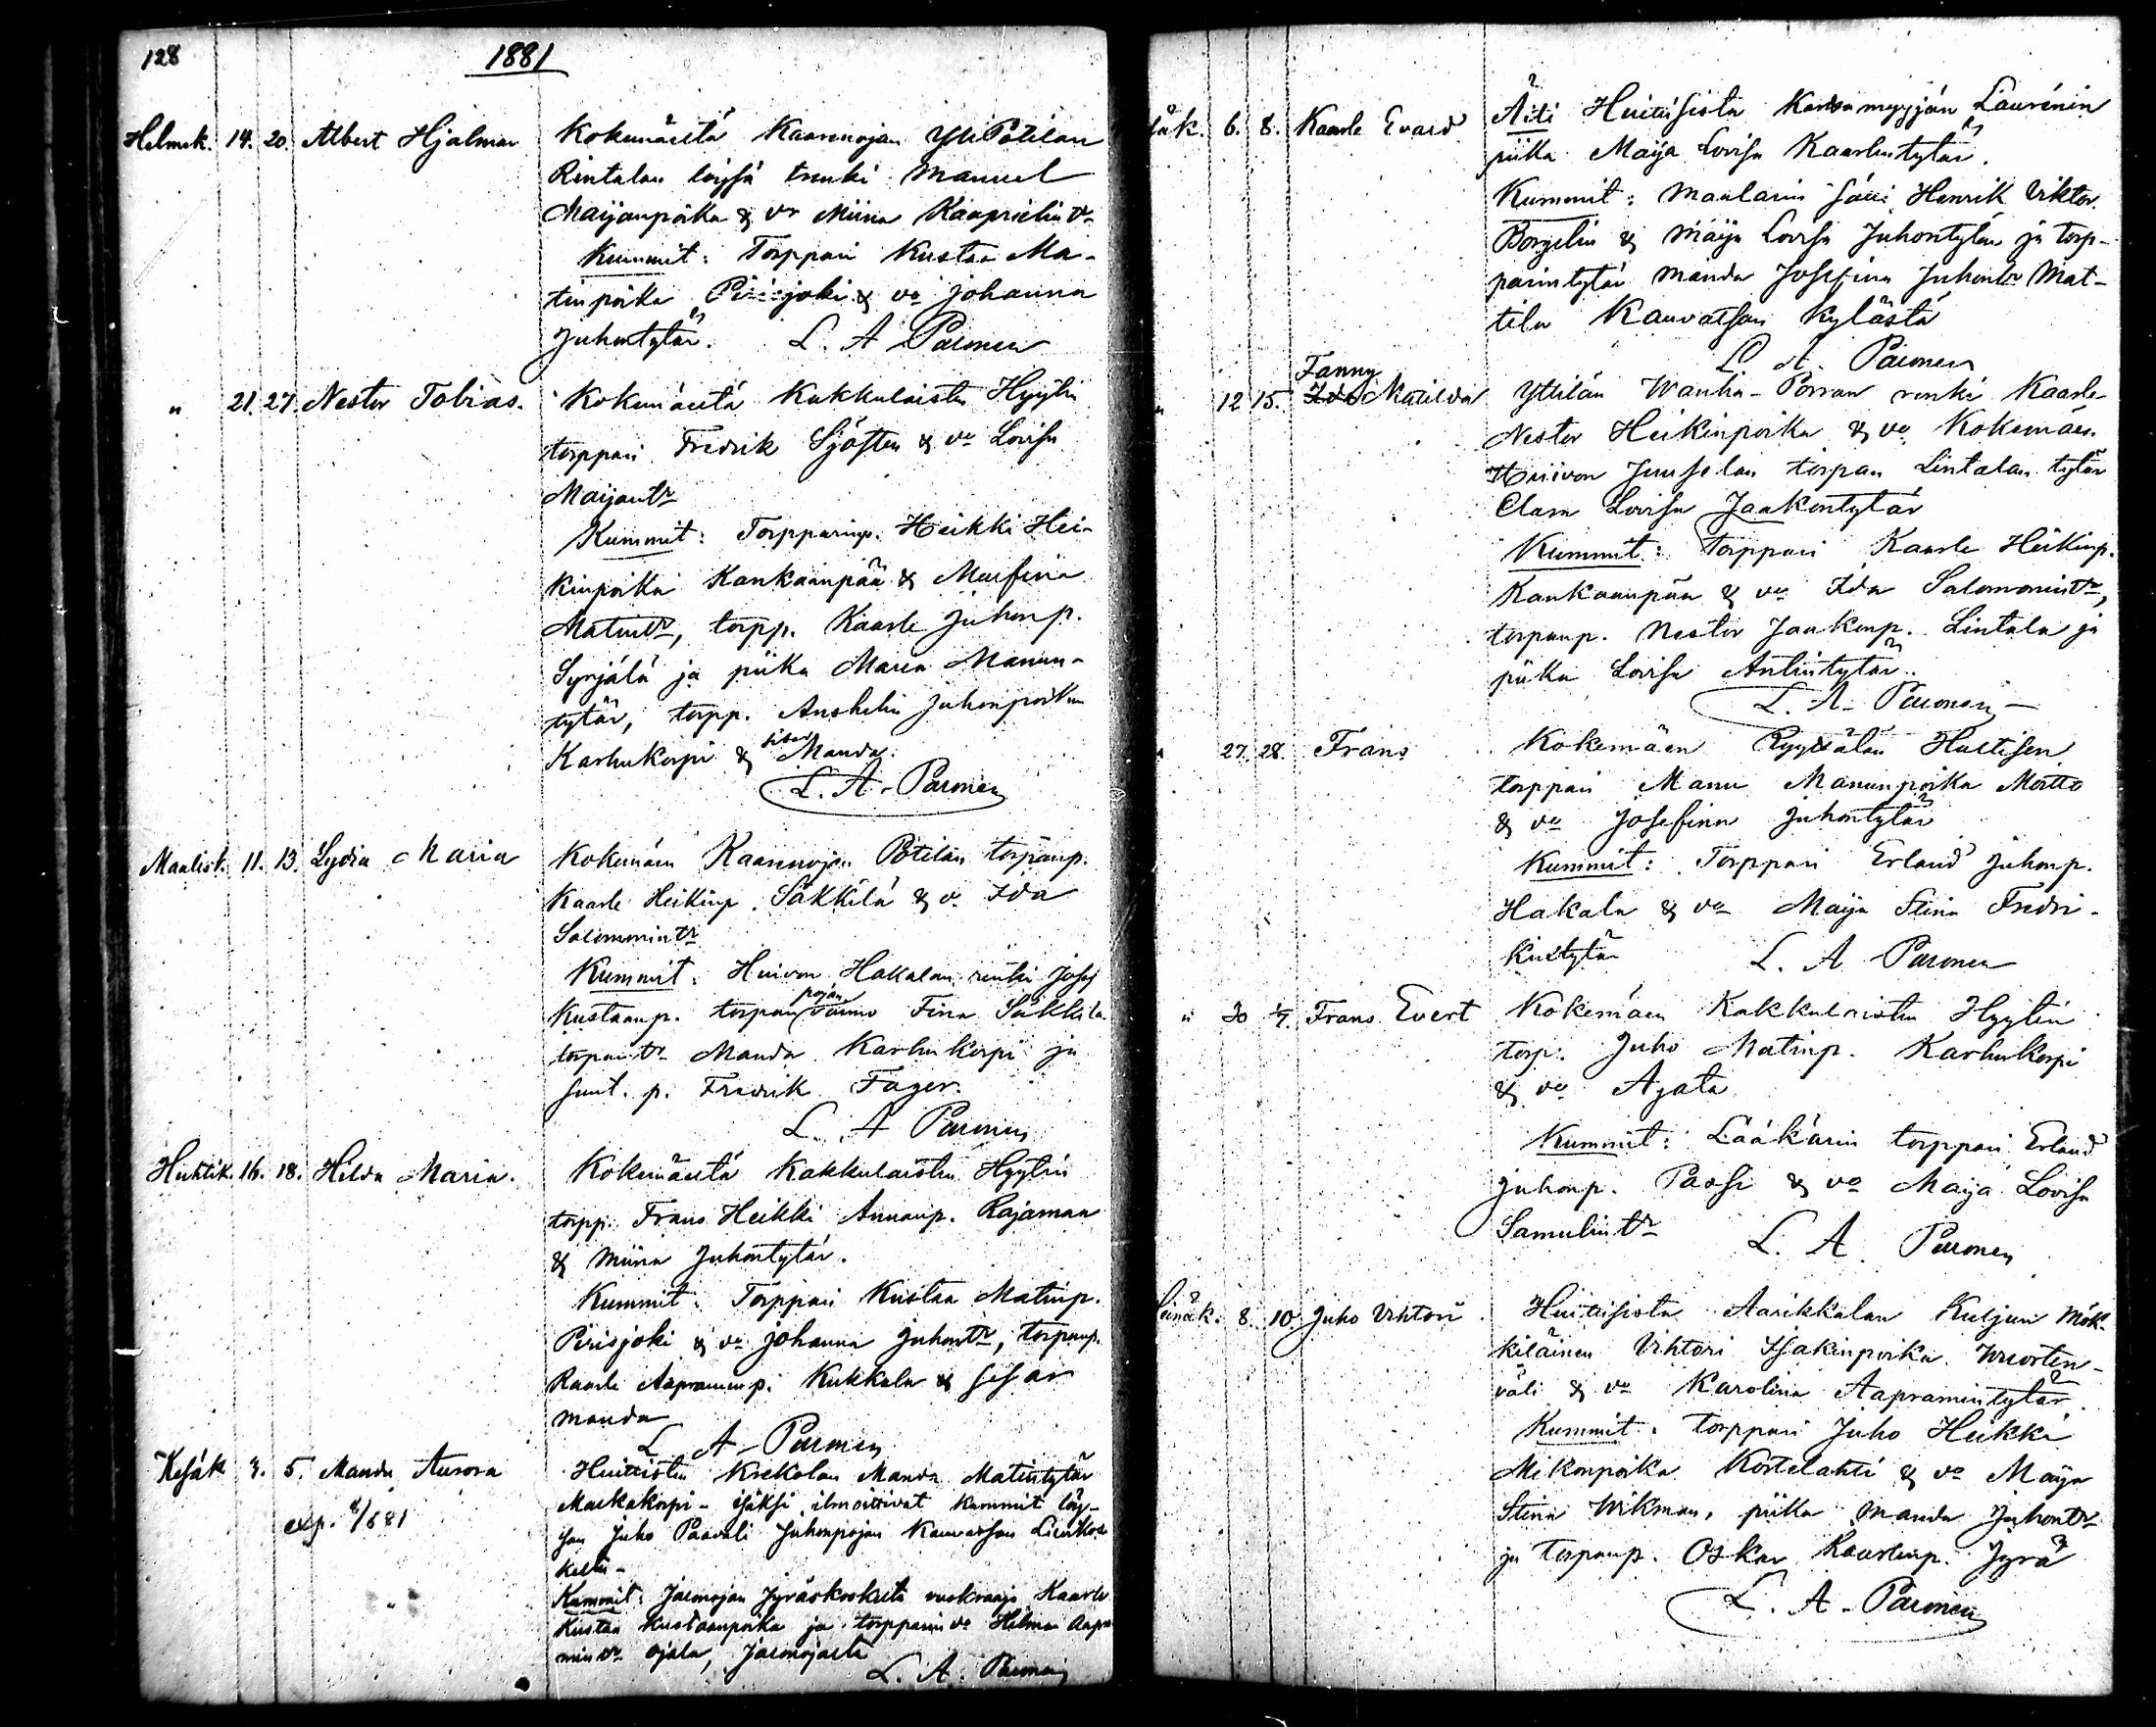 128
1881
Helmk. 14. 20. Albert Hjalmar Kokemäeltä Kaarenojan Yli Potilan
Rintalan löysä renki Manuel
Maijanpoika & vo Miina Kaaprielintr
Kummit: Torppari Kustaa Ma-
tinpoika Pirisjoki & vo Johanna
Juhontytär. L. A Palmen
" 21. 27. Nestor Tobias. Kokemäeltä Kakkulaisten Hyytin
torppari Fredrik Sjösten & vo Lovisa
Maijantr
Kummit: Torpparinp. Heikki Hei-
kinpoika Kankaanpää &
Matintr, torpp. Kaarle Juhonp.
Syrjälä ja piika Maria Manun-
tytär, torpp. Anshelm Juhonpoika
Karhukorpi & sisar Manda.
L. A. Palmen
Maalisk. 11. 13. Lydia Maria Kokemäen Kaarenojan Potilan torparinp.
Kaarle Heikinp. Säkkilä & vo Ida
Salomonintr
Kummit: Huivon Hakalan renki Josef
Kustaanp. torpan pojan vaimo Fina Säkkilä
torparintr Manda Karhukorpi ja
suut. p. Fredrik Fager.
L. A Palmen
Huhtik. 16. 18. Hilda Maria. Kokemäeltä Kakkulaisten Hyytin
torpp. Frans Heikki Annanp. Rajamaa
& Miina Juhontytär.
Kummit: Torppari Kustaa Matinp.
Pirisjoki & vo Johanna Juhontr, torpanp.
Kaarle Aapraminp. Kukkula & sisar
Manda
L. A. Palmen
Kesäk. 3. 5. Manda Aurora Huittisten Krekolan Manda Matintytär
exp. 8/6 81 isäksi ilmoittivat kummit löy-
sän Juho Paavali Juhonpojan Kauvatsan
Kummit: Jalonojan vuokraaja Kaarle
Kustaa Kustaanpoika ja torpparin vo Helma Aapra-
mintr Ojala, Jalonojasta
L. A. Palmen
6. 8. Kaarle Evard Äiti Huittisista Laurénin
piika Maija Lovisa Kaarlentytär.
Kummit: Maalarin sälli Henrik Viktor
Borgelin & Maija Lovisa Juhontytär ja torp-
parintytär Manda Josefina Juhontr Mat-
tila Kauvatsan kylästä
L. A. Palmen
Fanny
" 12 15. Ida Matilda Yttilän Wanha-Porran renki Kaarle
Nestor Heikinpoika & vo Kokemäen
Huivon Juuselan torpan Lintalan tytär
Clara Lovisa Jaakontytär
Kummit: Torppari Kaarle Heikinp.
Kankaanpää & vo Ida Salomonintr,
torpanp. Nestor Jaakonp. Lintala ja
piika Lovisa Antintytär.
L. A. Palmen
" 27. 28. Frans Kokemäen Ryytsälän Hultisen
torppari Manu Manunpoika Mertto
& vo Josefina Juhontytär
Kummit: Torppari Erland Juhonp.
Hakala & vo Maija Stina Fredri-
kintytär L. A Palmen
" 30 1/7. Frans Evert Kokemäen Kakkulaisten Hyytin
torp. Juho Matinp. Karhukorpi
& vo Agata
Kummit: Lääkärin torppari Erland
Juhonp. Passi & vo Maija Lovisa
Samulintr L. A. Palmen
Heinäk. 8. 10. Juho Vihtori Huittisista Aarikkalan Kuljun mök-
kiläinen Vihtori Isakinpoika Wuorten-
väli & vo Karolina Aapramintytär.
Kummit: torppari Juho Heikki
Mikonpoika Kortelahti & vo Maija
Stina Wikman, piika Manda Juhontr
ja torpanp. Oskar Kaarlenp. Jyrä
L. A. Palmen